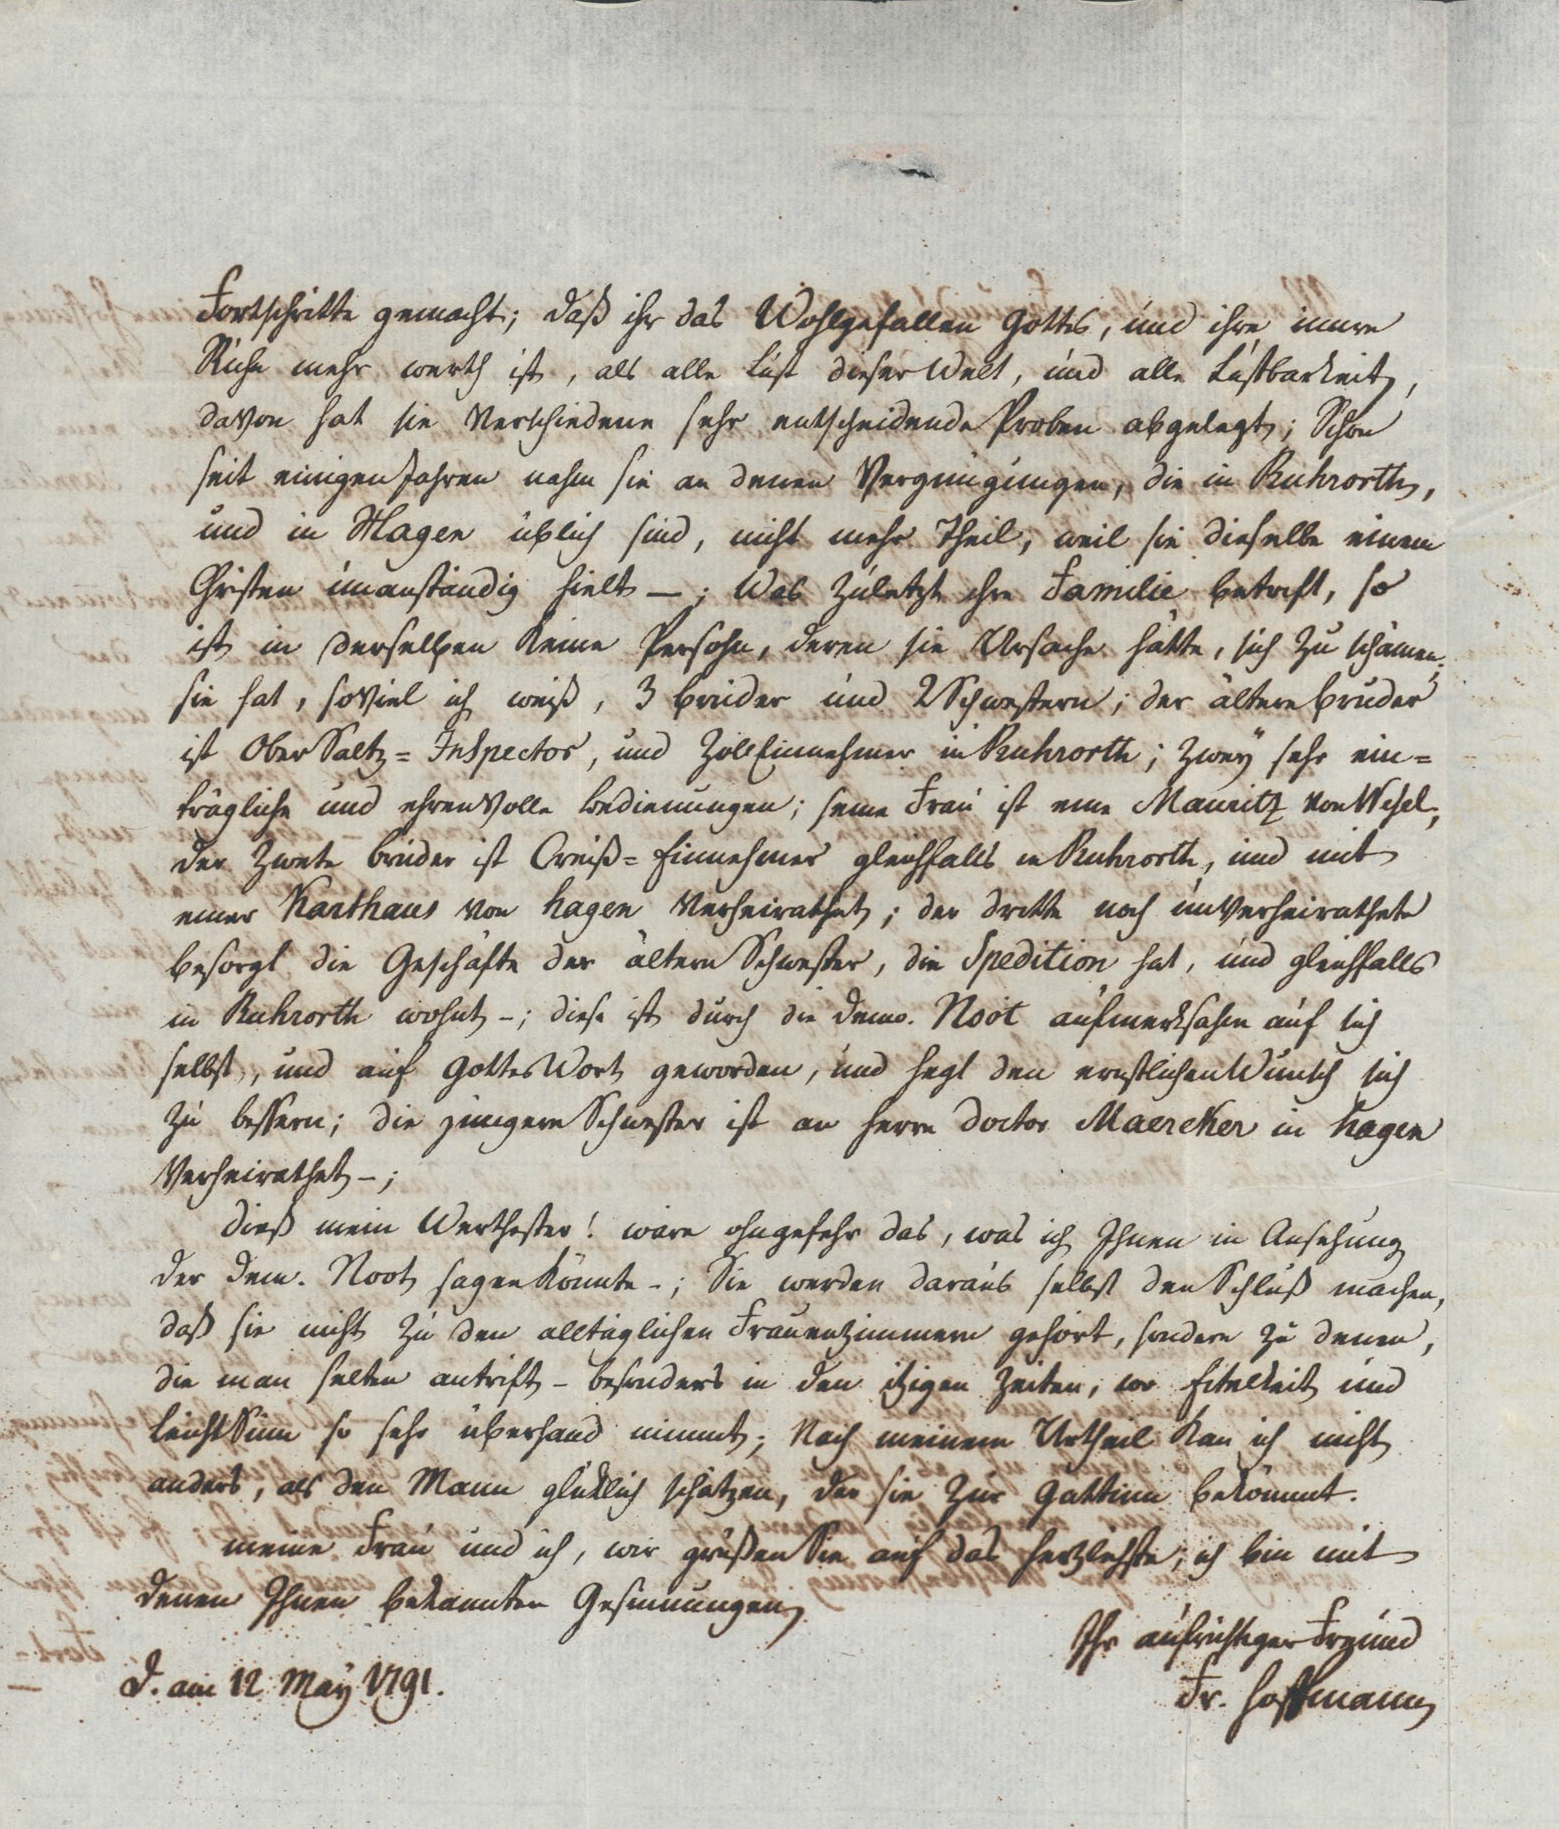 Fortschritte gemacht; daß ihr das Wohlgefallen Gottes, und ihre innre
Ruhe mehr werth ist, als alle Lust dieser Welt, und alle Lustbarkeit,
davon hat sie verschiedene sehr entscheidende Proben abgelegt; Schon
seit einigen Jahren nahm sie an denen Vergnügungen, die in Ruhrorth,
und in Hagen üblich sind, nicht mehr Theil, weil sie dieselbe einem
Christen unanständig hielt —; Was zuletzt ihre Familie betrift, so
ist in derselben keine Persohn, deren sie Ursache hätte, sich zu schämen;
sie hat, soviel ich weiß, 3 Brüder und 2 Schwestern; der ältere Bruder
ist Ober Saltz=Inspector, und Zoll Einnehmer in Ruhrorth; zwey sehr ein=
trägliche und ehrenvolle Bedienungen; seine Frau ist eine Mauritz von Wesel;
der zweite Bruder ist Creiß=Einnehmer gleichfalls in Ruhrorth, und mit
einer Karthaus von Hagen verheirathet; der dritte noch unverheirathete
besorgt die Geschäfte der ältern Schwester, die Spedition hat, und gleichfalls
in Ruhrorth wohnt -; diese ist durch die Dem. Noot aufmerksahm auf sich
selbst, und auf Gottes Wort geworden, und hegt den ernstlichen Wunsch sich
zu bessern; die jüngere Schwester ist an Herrn Doctor Maercker in Hagen
verheirathet -;
Dieß mein Werthester! wäre ohngefehr das, was ich Ihnen in Ansehung
der Dem. Noot sagen könnte -; Sie werden daraus selbst den Schluß machen,
daß sie nicht zu den alltäglichen Frauenzimmern gehört, sondern zu denen,
die man selten antrift - besonders in den itzigen Zeiten, wo Eitelkeit und
Leicht Sinn so sehr überhand nimmt; Nach meinem Urtheil kan ich nicht
anders, als den Mann glüklich schätzen, der sie zur Gattinn bekömmt.
meine Frau und ich, wir grüßen Sie auf das herzlichste; ich bin mit
denen Ihnen bekannten Gesinnungen
Ihr aufrichtiger Freund
D. am 12 May 1791.
Fr. Hoffmann